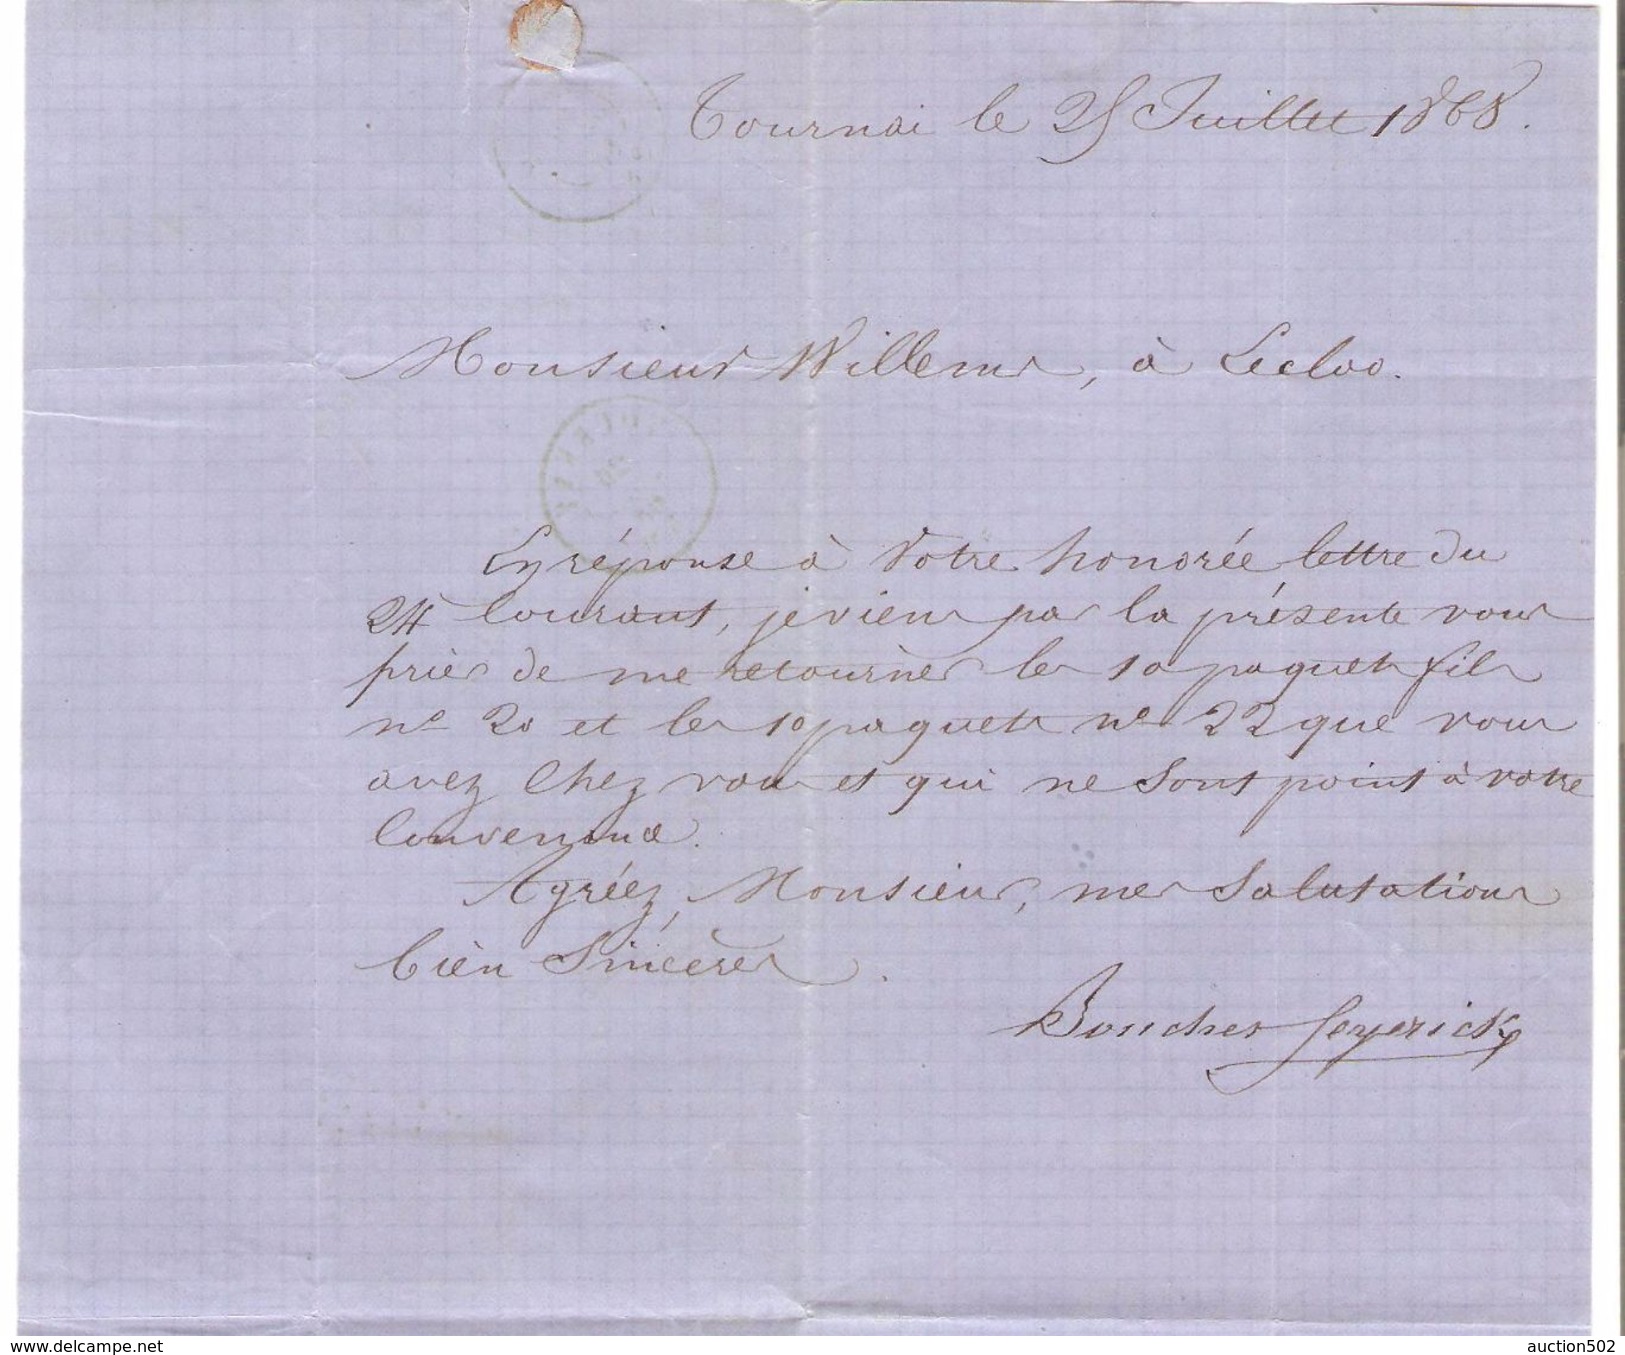 Tournai le 25 Juillet 1868.
Monsieur Willems, à Lecloo.
En réponse à Votre honorée lettre du
24 Courant, je viens par la présente vous
prier de me retourner les 10 paquets fils
nº 20 et les 10 paquets nº 22 que vous
avez Chez vous et qui ne Sont point à votre
Convenance.
Agréez, Monsieur, mes Salutations
bien Sincères.
Boucher
www.delcampe.net
auction502